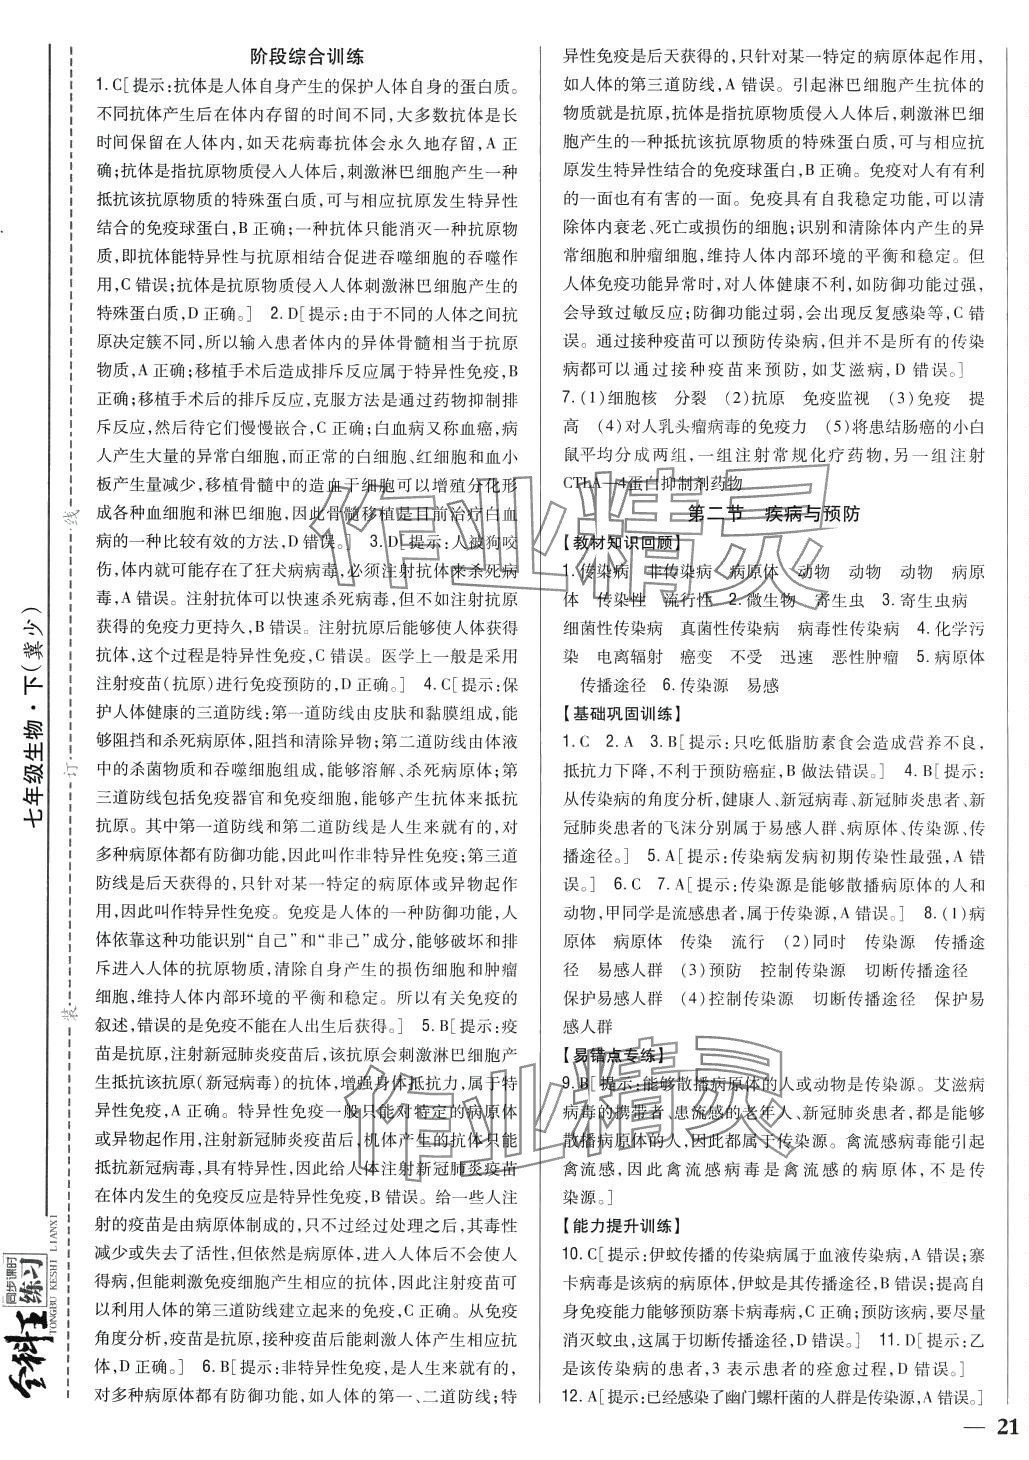 阶段综合训练
1. C[提示:抗体是人体自身产生的保护人体自身的蛋白质。
不同抗体产生后在体内存留的时间不同,大多数抗体是长
时间保留在人体内,如天花病毒抗体会永久地存留,A 正
确;抗体是指抗原物质侵入人体后,刺激淋巴细胞产生一种
抵抗该抗原物质的特殊蛋白质,可与相应抗原发生特异性
结合的免疫球蛋白,B 正确;一种抗体只能消灭一种抗原物
质,即抗体能特异性与抗原相结合促进吞噬细胞的吞噬作
用,C 错误;抗体是抗原物质侵入人体刺激淋巴细胞产生的
特殊蛋白质,D 正确。] 2. D[提示:由于不同的人体之间抗
原决定簇不同,所以输入患者体内的异体骨髓相当于抗原
物质,A 正确;移植手术后造成排斥反应属于特异性免疫,B
正确;移植手术后的排斥反应,克服方法是通过药物抑制排
斥反应,然后待它们慢慢嵌合,C 正确;白血病又称血癌,病
人产生大量的异常白细胞、而正常的白细胞、红细胞和血小
板产生量减少,移植骨髓中的造血干细胞可以增殖分化形
成各种血细胞和淋巴细胞,因此骨髓移植是目前治疗白血
病的一种比较有效的方法,D 错误。] 3. D[提示:人被狗咬
伤,体内就可能存在了狂犬病病毒,必须注射抗体来杀死病
毒,A 错误。注射抗体可以快速杀死病毒,但不如注射抗原
获得的免疫力更持久,B 错误。注射抗原后能够使人体获得
抗体,这个过程是特异性免疫,C 错误。医学上一般是采用
注射疫苗(抗原)进行免疫预防的,D 正确。] 4. C[提示:保
护人体健康的三道防线:第一道防线由皮肤和黏膜组成,能
够阻挡和杀死病原体,阻挡和清除异物;第二道防线由体液
中的杀菌物质和吞噬细胞组成,能够溶解、杀死病原体;第
三道防线包括免疫器官和免疫细胞,能够产生抗体来抵抗
抗原。其中第一道防线和第二道防线是人生来就有的,对
多种病原体都有防御功能,因此叫作非特异性免疫;第三道
防线是后天获得的,只针对某一特定的病原体或异物起作
用,因此叫作特异性免疫。免疫是人体的一种防御功能,人
体依靠这种功能识别“自己”和“非己”成分,能够破坏和排
斥进入人体的抗原物质,清除自身产生的损伤细胞和肿瘤
细胞,维持人体内部环境的平衡和稳定。所以有关免疫的
叙述,错误的是免疫不能在人出生后获得。] 5. B[提示:疫
苗是抗原,注射新冠肺炎疫苗后,该抗原会刺激淋巴细胞产
生抵抗该抗原(新冠病毒)的抗体,增强身体抵抗力,属于特
异性免疫,A 正确。特异性免疫一般只能对特定的病原体
或异物起作用,注射新冠肺炎疫苗后,机体产生的抗体只能
抵抗新冠病毒,具有特异性,因此给人体注射新冠肺炎疫苗
在体内发生的免疫反应是特异性免疫,B 错误。给一些人注
射的疫苗是由病原体制成的,只不过经过处理之后,其毒性
减少或失去了活性,但依然是病原体,进入人体后不会使人
得病,但能刺激免疫细胞产生相应的抗体,因此注射疫苗可
以利用人体的第三道防线建立起来的免疫,C 正确。从免疫
角度分析,疫苗是抗原,接种疫苗后能刺激人体产生相应抗
体,D 正确。] 6. B[提示:非特异性免疫,是人生来就有的,
对多种病原体都有防御功能,如人体的第一、二道防线;特
异性免疫是后天获得的,只针对某一特定的病原体起作用,
如人体的第三道防线,A 错误。引起淋巴细胞产生抗体的
物质就是抗原,抗体是指抗原物质侵入人体后,刺激淋巴细
胞产生的一种抵抗该抗原物质的特殊蛋白质,可与相应抗
原发生特异性结合的免疫球蛋白,B 正确。免疫对人有有利
的一面也有有害的一面。免疫具有自我稳定功能,可以清
除体内衰老、死亡或损伤的细胞;识别和清除体内产生的异
常细胞和肿瘤细胞,维持人体内部环境的平衡和稳定。但
人体免疫功能异常时,对人体健康不利,如防御功能过强,
会导致过敏反应;防御功能过弱,会出现反复感染等,C 错
误。通过接种疫苗可以预防传染病,但并不是所有的传染
病都可以通过接种疫苗来预防,如艾滋病,D 错误。]
7. (1)细胞核 分裂 (2)抗原 免疫监视 (3)免疫 提
高 (4)对人乳头瘤病毒的免疫力 (5)将患结肠癌的小白
鼠平均分成两组,一组注射常规化疗药物,另一组注射
CTLA—4蛋白抑制剂药物
第二节 疾病与预防
【教材知识回顾】
1. 传染病 非传染病 病原体 动物 动物 动物 病原
体 传染性 流行性 2. 微生物 寄生虫 3. 寄生虫病
细菌性传染病 真菌性传染病 病毒性传染病 4. 化学污
染 电离辐射 癌变 不受 迅速 恶性肿瘤 5. 病原体
传播途径 6. 传染源 易感
【基础巩固训练】
1. C 2. A 3. B[提示:只吃低脂肪素食会造成营养不良,
抵抗力下降,不利于预防癌症,B 做法错误。] 4. B[提示:
从传染病的角度分析,健康人、新冠病毒、新冠肺炎患者、新
冠肺炎患者的飞沫分别属于易感人群、病原体、传染源、传
播途径。] 5. A[提示:传染病发病初期传染性最强,A 错
误。] 6. C 7. A[提示:传染源是能够散播病原体的人和
动物,甲同学是流感患者,属于传染源,A 错误。] 8. (1)病
原体 病原体 传染 流行 (2)同时 传染源 传播途
径 易感人群 (3)预防 控制传染源 切断传播途径
保护易感人群 (4)控制传染源 切断传播途径 保护易
感人群
【易错点专练】
9. B[提示:能够散播病原体的人或动物是传染源。艾滋病
病毒的携带者、患流感的老年人、新冠肺炎患者,都是能够
散播病原体的人,因此都属于传染源。禽流感病毒能引起
禽流感,因此禽流感病毒是禽流感的病原体,不是传
染源。]
【能力提升训练】
10. C[提示:伊蚊传播的传染病属于血液传染病,A 错误;寨
卡病毒是该病的病原体,伊蚊是其传播途径,B 错误;提高自
身免疫能力能够预防寨卡病毒病,C 正确;预防该病,要尽量
消灭蚊虫,这属于切断传播途径,D 错误。] 11. D[提示:乙
是该传染病的患者,3 表示患者的痊愈过程,D 错误。]
12. A[提示:已经感染了幽门螺杆菌的人群是传染源,A 错误。]
— 21
七年级生物·下(冀少)
装 订 线
全科王
同步课时
练习
TONGBU KESHI LIANXI
作业精灵
作业精灵